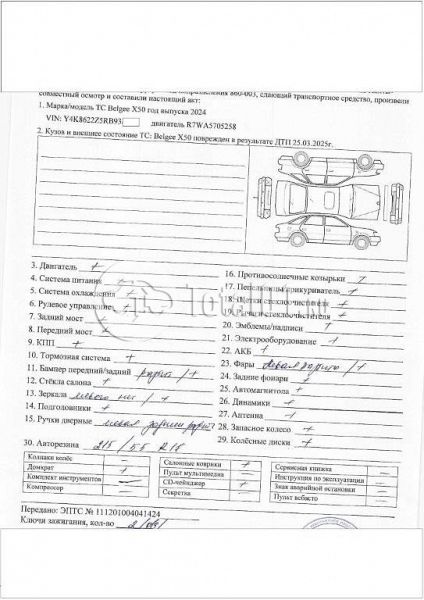 совместный осмотр и составили настоящий акт:
1. Марка/модель ТС Belgee X50 год выпуска 2024
VIN: Y4K8622Z5RB93 двигатель R7WA5705258
2. Кузов и внешнее состояние ТС: Belgee X50 поврежден в результате ДТП 25.03.2025г.
3. Двигатель +
4. Система питания
5. Система охлаждения +
6. Рулевое управление
7. Задний мост
8. Передний мост +
9. КПП +
10. Тормозная система +
11. Бампер передний/задний / +
12. Стёкла салона +
13. Зеркала левого нет / +
14. Подголовники +
15. Ручки дверные левая
16. Противосолнечные козырьки +
17. Пепельницы/прикуриватель +
18. Щетки стеклоочистителя +
19. Рычаги стеклоочистителя +
20. Эмблемы/надписи +
21. Электрооборудование +
22. АКБ +
23. Фары левая / +
24. Задние фонари +
25. Автомагнитола +
26. Динамики +
27. Антенна +
28. Запасное колесо —
29. Колёсные диски +
30. Авторезина 215/55 R18
Колпаки колёс —
Домкрат +
Комплект инструментов —
Компрессор —
Салонные коврики +
Пульт мультимедиа —
CD-чейнджер +
Секретка —
Сервисная книжка —
Инструкция по эксплуатации —
Знак аварийной остановки —
Пульт вебасто —
Передано: ЭПТС № 111201004041424
Ключи зажигания, кол-во 2